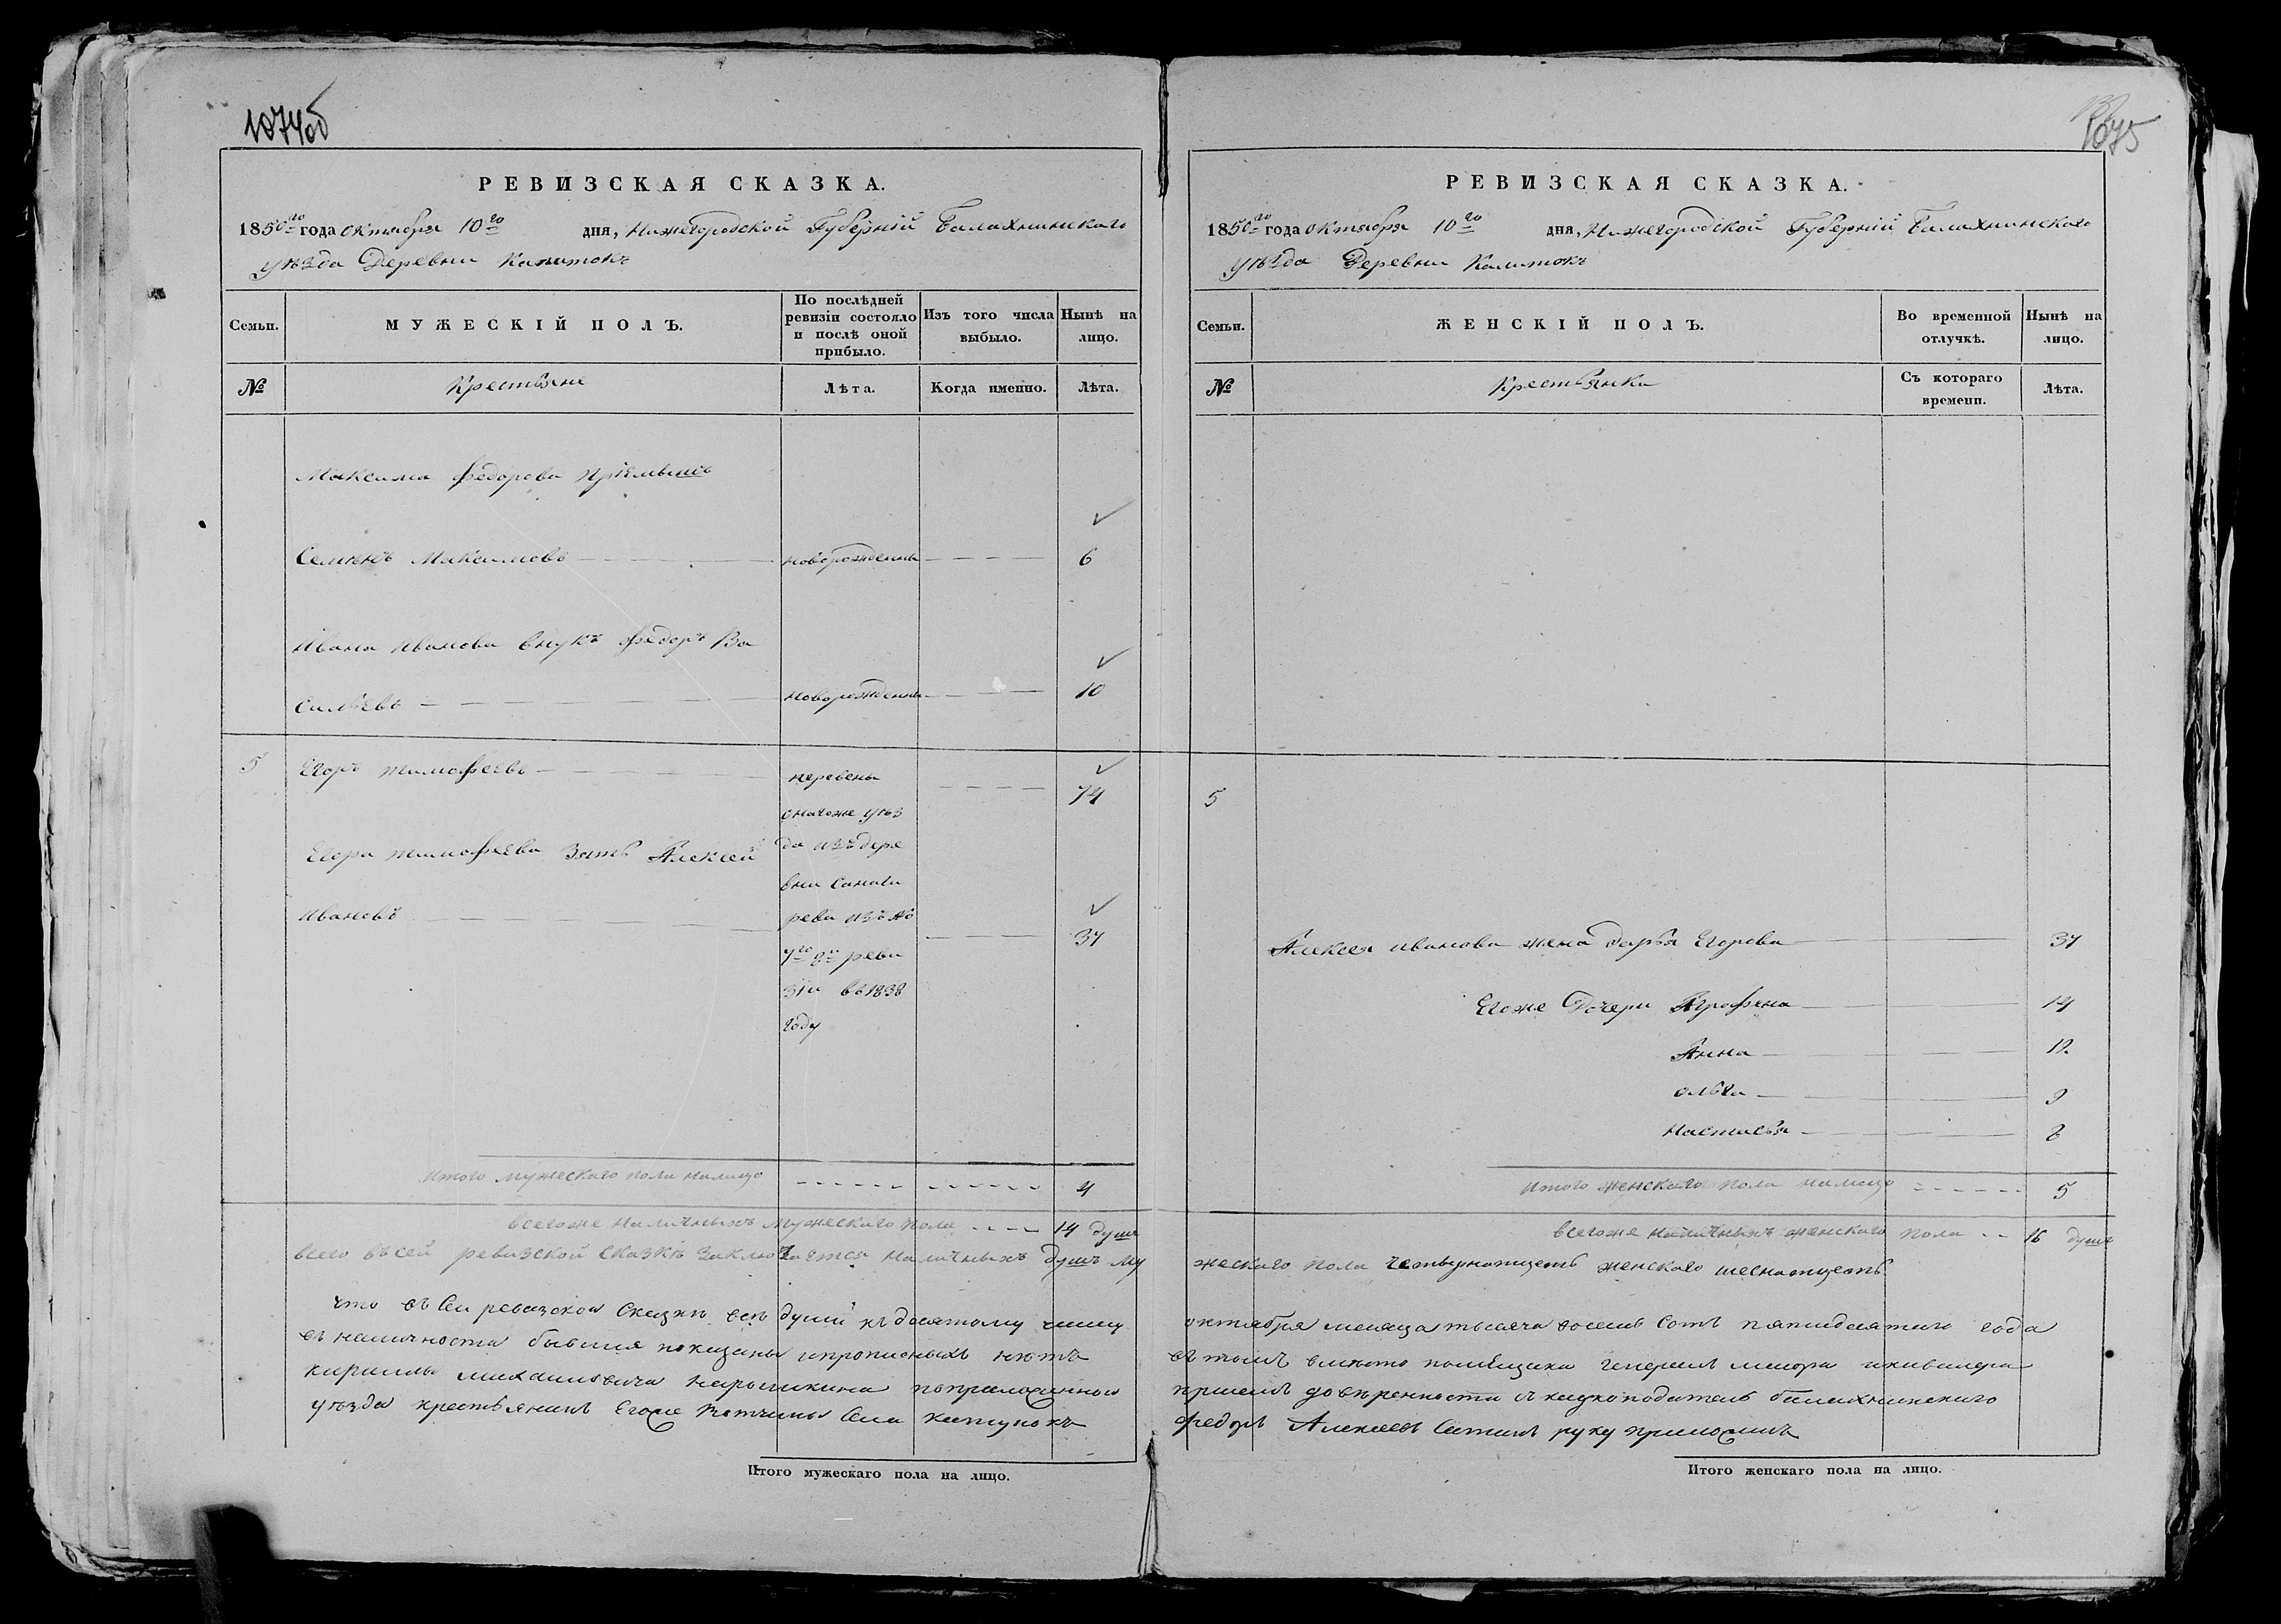 1074об
РЕВИЗСКАЯ СКАЗКА.
1850го года октября 10го дня, Нижегородской Губерніи Балахнинскаго
уѣзда Деревни Калиток
Семьи.
МУЖЕСКІЙ ПОЛЪ.
По послѣдней ревизіи состояло и послѣ оной прибыло.
Изъ того числа выбыло.
Нынѣ на лицо.
№
Крестьяне
Лѣта.
Когда именно.
Лѣта.
Максима Федорова пріемышъ
Семенъ Максимовъ новорожденны 6
Ивана Иванова внукъ Федоръ Ва
сильевъ новорожденны 10
5 Егоръ тимофеевъ 74
переведены
стогоже уѣз
Егора тимофеева зять Алексей
да изъ дере
вни
Ивановъ 37
рева изъ №
7го 8й реви
зіи въ 1838
году
итого мужескаго пола налицо 4
всегоже наличныхъ мужескаго пола 14 душъ
всего въ сей ревизской сказкѣ заключается наличныхъ душъ му
что въ сей ревизской сказкѣ все души къ десятому числу
въ наличности бывшія показаны и прописныхъ нѣтъ
кирилы михаиловича нарышкина
уѣзда крестьянинъ егоже вотчины села катунокъ
Итого мужескаго пола на лицо.
1075
РЕВИЗСКАЯ СКАЗКА.
1850го года октября 10го дня, Нижегородской Губерніи Балахнинскаго
уѣзда Деревни Калиток
Семьи.
ЖЕНСКІЙ ПОЛЪ.
Во временной отлучкѣ.
Нынѣ на лицо.
№
Крестьянки
Съ котораго времени.
Лѣта.
5
Алексея иванова жена дарья Егорова 37
Егоже Дочери Аграфена 14
Анна 12
ольга 9
настасья 8
итого женскаго пола налицо 5
всегоже наличныхъ женскаго пола 16 душъ
жескаго пола четырнатцеть женскаго шеснатцеть
октября месяца тысяча восемь сотъ пятидесятаго года
въ томъ вместо помещика генералъ маіора и кавалера
доверенности сказкоподатель балахнинскаго
федоръ Алексеевъ руку приложилъ
Итого женскаго пола на лицо.